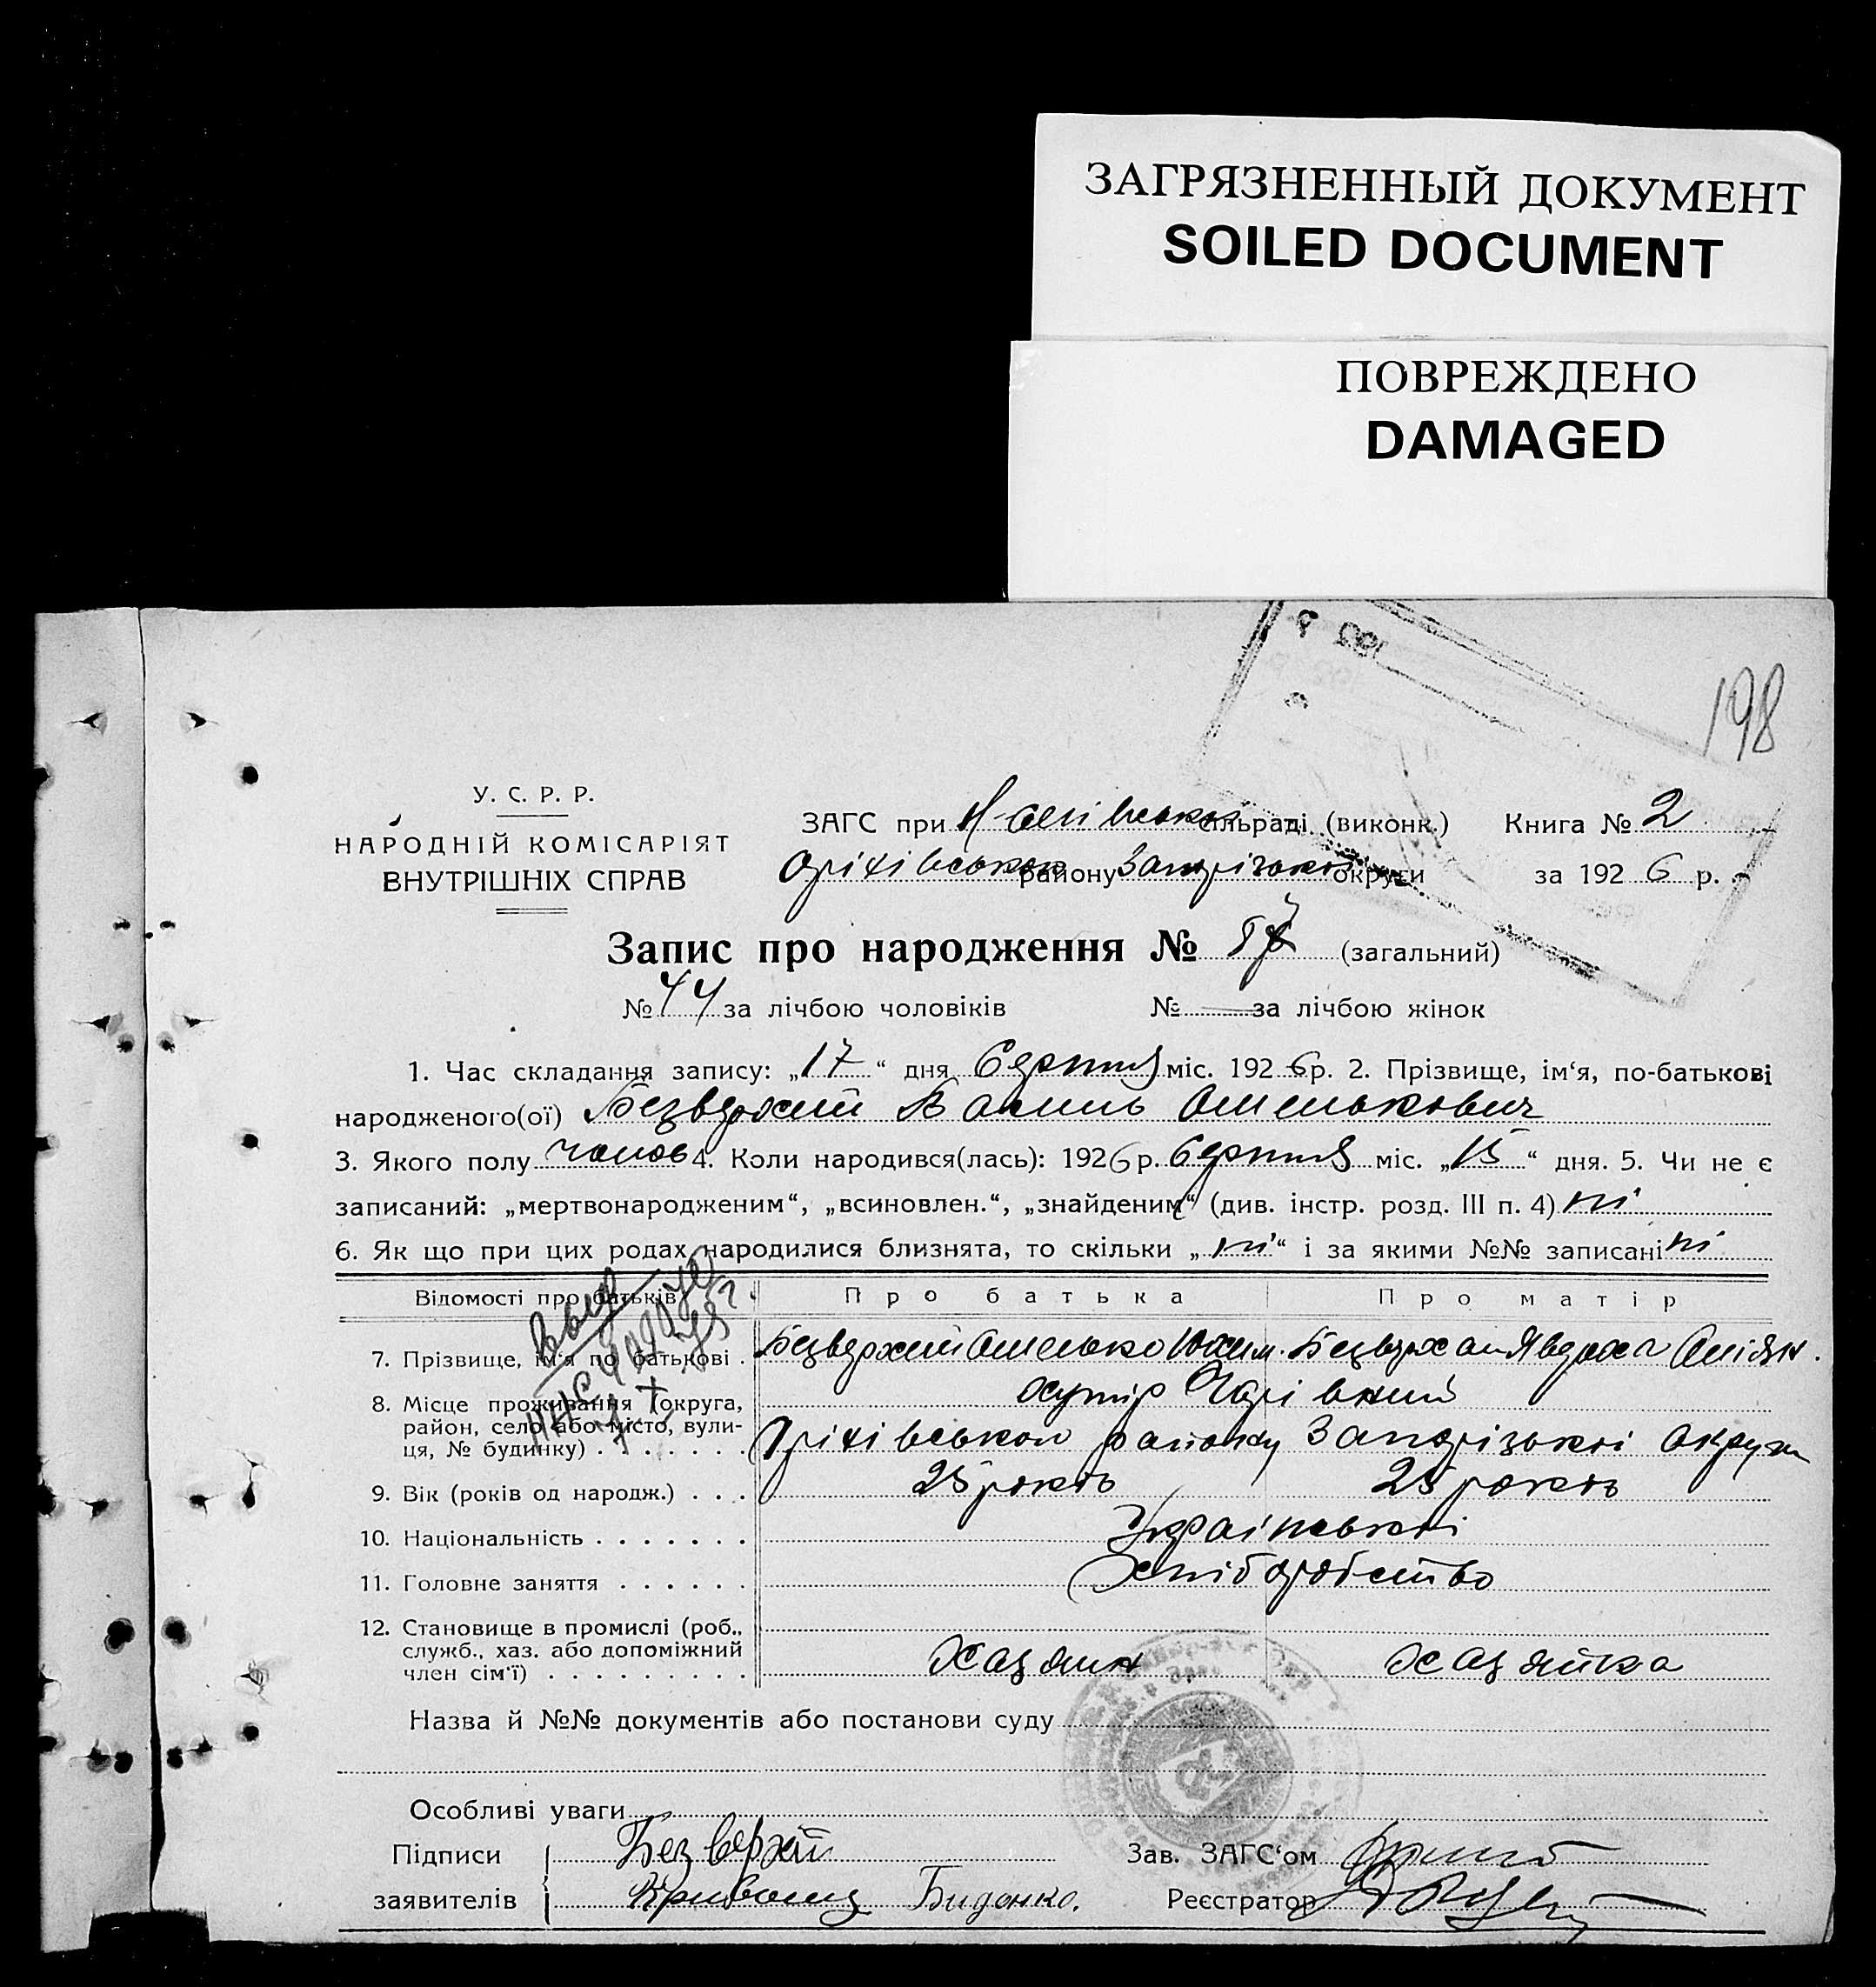 ЗАГРЯЗНЕННЫЙ ДОКУМЕНТ
SOILED DOCUMENT
ПОВРЕЖДЕНО
DAMAGED
198
У. С. Р. Р.
НАРОДНІЙ КОМІСАРІЯТ
ВНУТРІШНІХ СПРАВ
ЗАГС при сільраді (виконк.) Книга № 2
Оріхівського району Запорізької округи за 1926 р.
Запис про народження № (загальний)
№ 44 за лічбою чоловіків № — за лічбою жінок
1. Час складання запису: „17“ дня Серпня міс. 1926 р. 2. Прізвище, ім‘я, по-батькові
народженого(ої) Безверхий Василь Омелькович
3. Якого полу чолов 4. Коли народився(лась): 1926 р. Серпня міс. „15“ дня. 5. Чи не є
записаний: „мертвонародженим“, „всиновлен.“, „знайденим“ (див. інстр. розд. III п. 4) ні
6. Як що при цих родах народилися близнята, то скільки „ні“ і за якими №№ записані ні
Відомості про батьків Про батька Про матір
7. Прізвище, ім‘я по батькові . Безверхий Омелько Юхим. Безверха Явдоха
8. Місце проживання (округа, район, село або місто, вулиця, № будинку) . . . . . . . хутір
Оріхівського району Запорізької округи
9. Вік (років од народж.) . . . 25 років 25 років
10. Національність . . . . . . . Українські
11. Головне заняття . . . . . . Хліборобство
12. Становище в промислі (роб., служб., хаз. або допоміжний член сім‘ї) . . . . . . . . . Хазяин хазяйка
Назва й №№ документів або постанови суду
Особливі уваги
Підписи Безверхий Зав. ЗАГС‘ом
заявителів Реєстратор